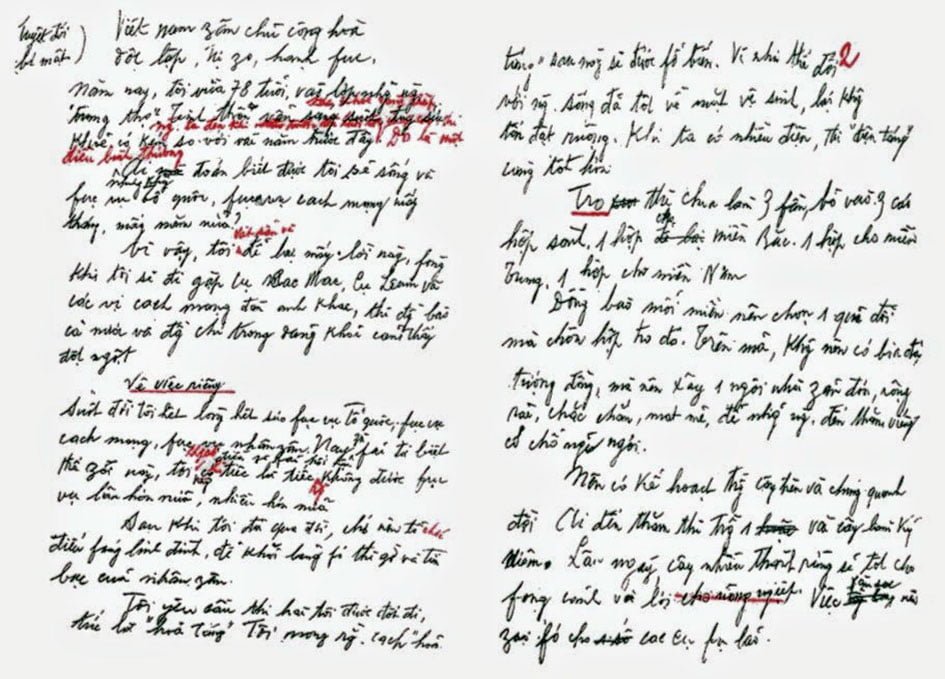 Tuyệt đối
bí mật)
Việt nam zân chủ cộng hoà
độc lập, tự zo, hạnh fúc,
Năm nay, tôi vừa 78 tuổi, vào lớp những ng.
"trung thọ". Tinh thần vẫn sáng suốt, tuy sức
khoẻ có kém so với vài năm trước đây. Đó là một
điều bình thường
đoán biết được tôi sẽ sống và
fục vụ tổ quốc, fục vụ cách mạng mấy
tháng, mấy năm nữa?
Vì vậy, tôi để lại mấy lời này, fòng
khi tôi sẽ đi gặp cụ Các Mác, cụ Lênin và
các vị cách mạng đàn anh khác, thì đg bào
cả nước và đg chí trong đảng khỏi cảm thấy
đột ngột
Về việc riêng
Suốt đời tôi hết lòng hết sức fục vụ tổ quốc, fục vụ
cách mạng, fục vụ nhân zân. Nay zù fải từ biệt
thế zới này, tôi không có điều gì fải hối hận
chỉ tiếc là tiếc không được fục
vụ lâu hơn nữa, nhiều hơn nữa
Sau khi tôi đã qua đời, chớ nên tổ chức
điếu fúng linh đình, để khỏi lãng fí thì zờ và tiền
bạc của nhân zân.
Tôi yêu cầu thi hài tôi được đốt đi,
tức là "hoả táng". Tôi mong rằng cách "hoả
2
táng" sau này sẽ được fổ biến. Vì như thế đối
với ng. sống đã tốt về mặt vệ sinh, lại khg
tốn đất ruộng. Khi ta có nhiều điện, thì "điện táng"
càng tốt hơn
Tro thì chia làm 3 fần, bỏ vào 3 cái
hộp sành, 1 hộp cho miền Bắc. 1 hộp cho miền
Trung, 1 hộp cho miền Nam
Đồng bào mỗi miền nên chọn 1 quả đồi
mà chôn hộp tro đó. Trên mả, khg nên có bia đá
tượng đồng, mà nên xây 1 ngôi nhà zản đơn, rộng
rãi, chắc chắn, mát mẻ, để những ng. đến thăm viếng
có chỗ nghỉ ngơi.
Nên có kế hoạch trồng cây trên và chung quanh
đồi. Ai đến thăm thì trồng 1 vài cây làm kỷ
niệm. Lâu ngày, cây nhiều thành rừng sẽ tốt cho
fong cảnh và lợi cho nông nghiệp. Việc săn sóc nên
zao fó cho các cụ fụ lão.